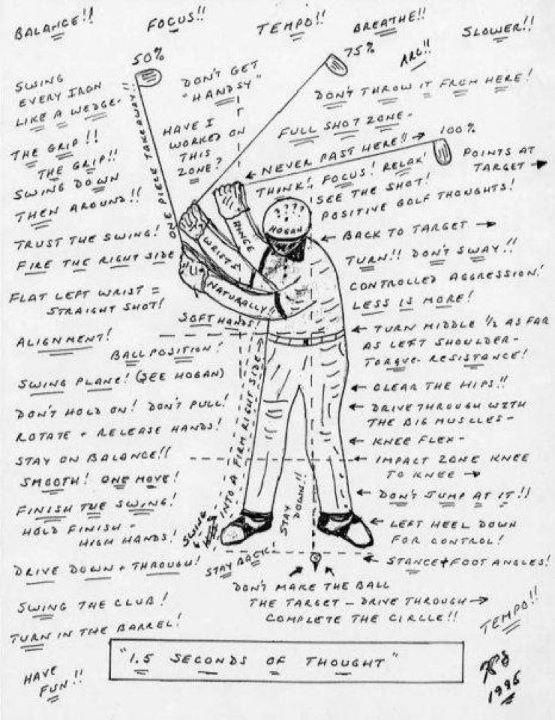 BALANCE!!
FOCUS!!
TEMPO!!
BREATHE!!
SLOWER!!
50%
75%
ARC!!
SWING
EVERY IRON
LIKE A WEDGE-
DON'T GET
"HANDSY"
DON'T THROW IT FROM HERE!
THE GRIP!!
THE GRIP!!
SWING DOWN
THEN AROUND!!
ONE PIECE TAKEAWAY!!
HAVE I
WORKED ON
THIS
ZONE?
FULL SHOT ZONE-
100%
← NEVER PAST HERE!! →
POINTS AT
TARGET →
THINK! FOCUS! RELAX!
SEE THE SHOT!
POSITIVE GOLF THOUGHTS!
TRUST THE SWING!
FIRE THE RIGHT SIDE
????
HOGAN
HINGE
WRISTS
NATURALLY!!
← BACK TO TARGET →
TURN!! DON'T SWAY!!
CONTROLLED AGGRESSION!
LESS IS MORE!
FLAT LEFT WRIST =
STRAIGHT SHOT!
SOFT HANDS!
← TURN MIDDLE 1/2 AS FAR
AS LEFT SHOULDER-
TORQUE- RESISTANCE!
ALIGNMENT!
BALL POSITION!
SWING PLANE! (SEE HOGAN)
← CLEAR THE HIPS!!
DON'T HOLD ON! DON'T PULL!
ROTATE + RELEASE HANDS!
← DRIVE THROUGH WITH
THE BIG MUSCLES-
← KNEE FLEX-
STAY ON BALANCE!!
SMOOTH! ONE MOVE!
← IMPACT ZONE KNEE
TO KNEE →
FINISH THE SWING!
HOLD FINISH -
HIGH HANDS!
SWING
INTO A FIRM RIGHT SIDE
STAY DOWN!!
← DON'T JUMP AT IT!!
← LEFT HEEL DOWN
FOR CONTROL!
DRIVE DOWN + THROUGH!
STAY BACK
← STANCE + FOOT ANGLES!
DON'T MAKE THE BALL
THE TARGET - DRIVE THROUGH →
COMPLETE THE CIRCLE!!
SWING THE CLUB!
TURN IN THE BARREL!
TEMPO!!
"1.5 SECONDS OF THOUGHT"
HAVE
FUN!!